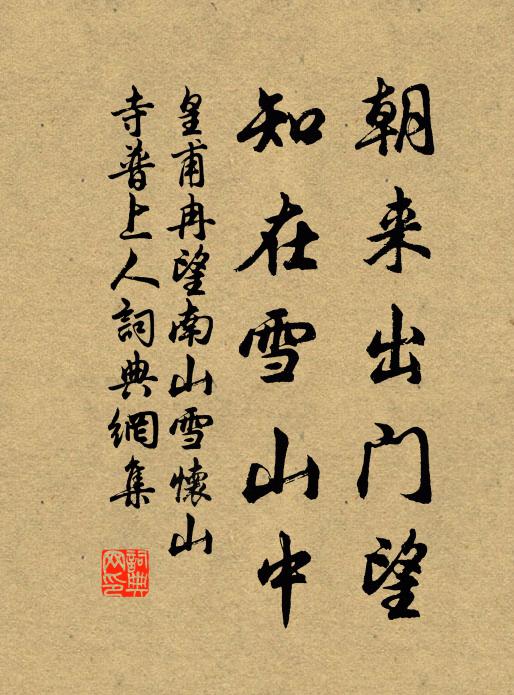 朝来出门望
知在雪山中
皇甫冉望南山雪懷山
寺普上人詞典網集
詞典
网印